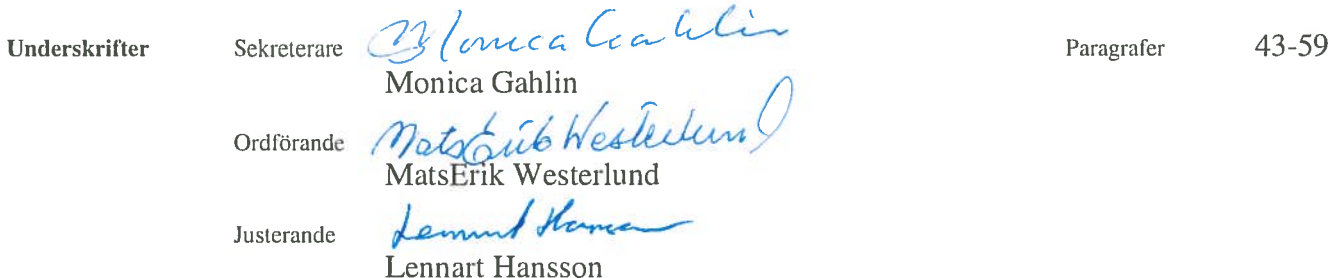 Underskrifter Sekreterare Monica Gahlin Paragrafer 43-59
Monica Gahlin
Ordförande MatsErik Westerlund
MatsErik Westerlund
Justerande Lennart Hansson
Lennart Hansson